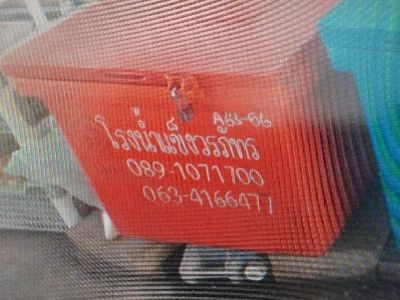 A63-56
โรงน้ำแข็งวรภัทร
089-1071700
063-4166477